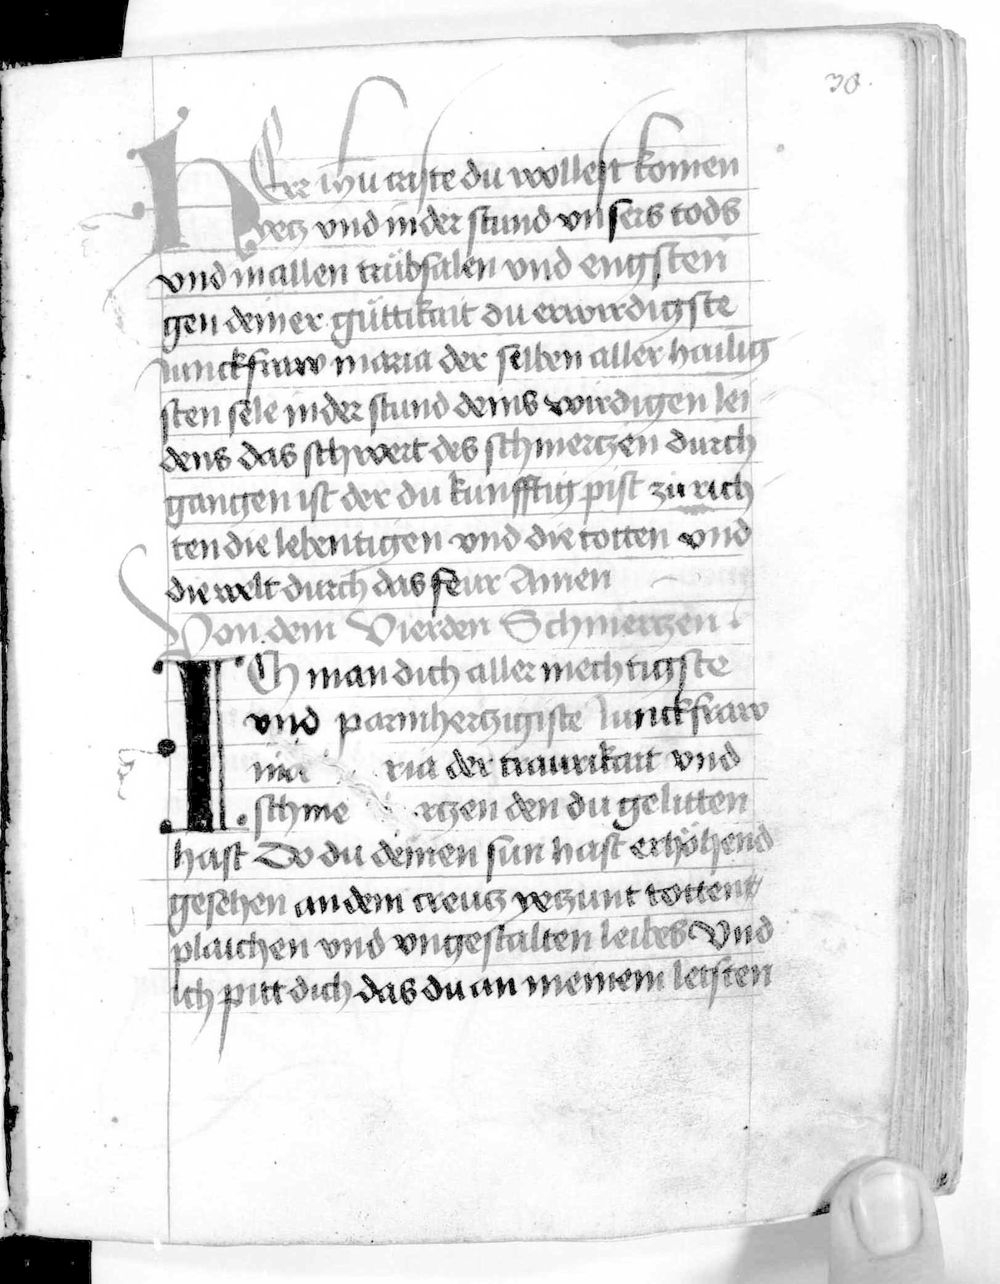 30.
HErr ihu criste du wollest komen
yetz vnd in der stund vnsers tods
vnd in allen trübsalen vnd engsten
gen deiner güttikait du erwirdigste
Junckfraw maria der selben aller hailig
sten sele in der stund deins wirdigen lei
dens das schwert des schmertzen durch
gangen ist der du kunfftig pist zü rich
ten die lebentigen vnd die totten vnd
die welt durch das feur Amen
Von dem Vierden Schmertzen
ICh man dich aller mechtigste
vnd parmhertzigiste Junckfraw
ma ria der traurikait vnd
schme rtzen den du gelitten
hast Do du deinen sun hast erhöhend
gesehen an dem creutz yetzunt totten
plaichen vnd vngestalten leibes Vnd
ich pitt dich das du an meinem letsten